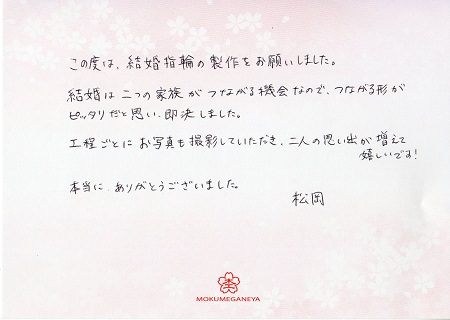 この度は、結婚指輪の製作をお願いしました。
結婚は二つの家族がつながる機会なので、つながる形が
ピッタリだと思い、即決しました。
工程ごとにお写真も撮影していただき、二人の思い出が増えて
嬉しいです!
本当に、ありがとうございました。
松岡
MOKUMEGANEYA